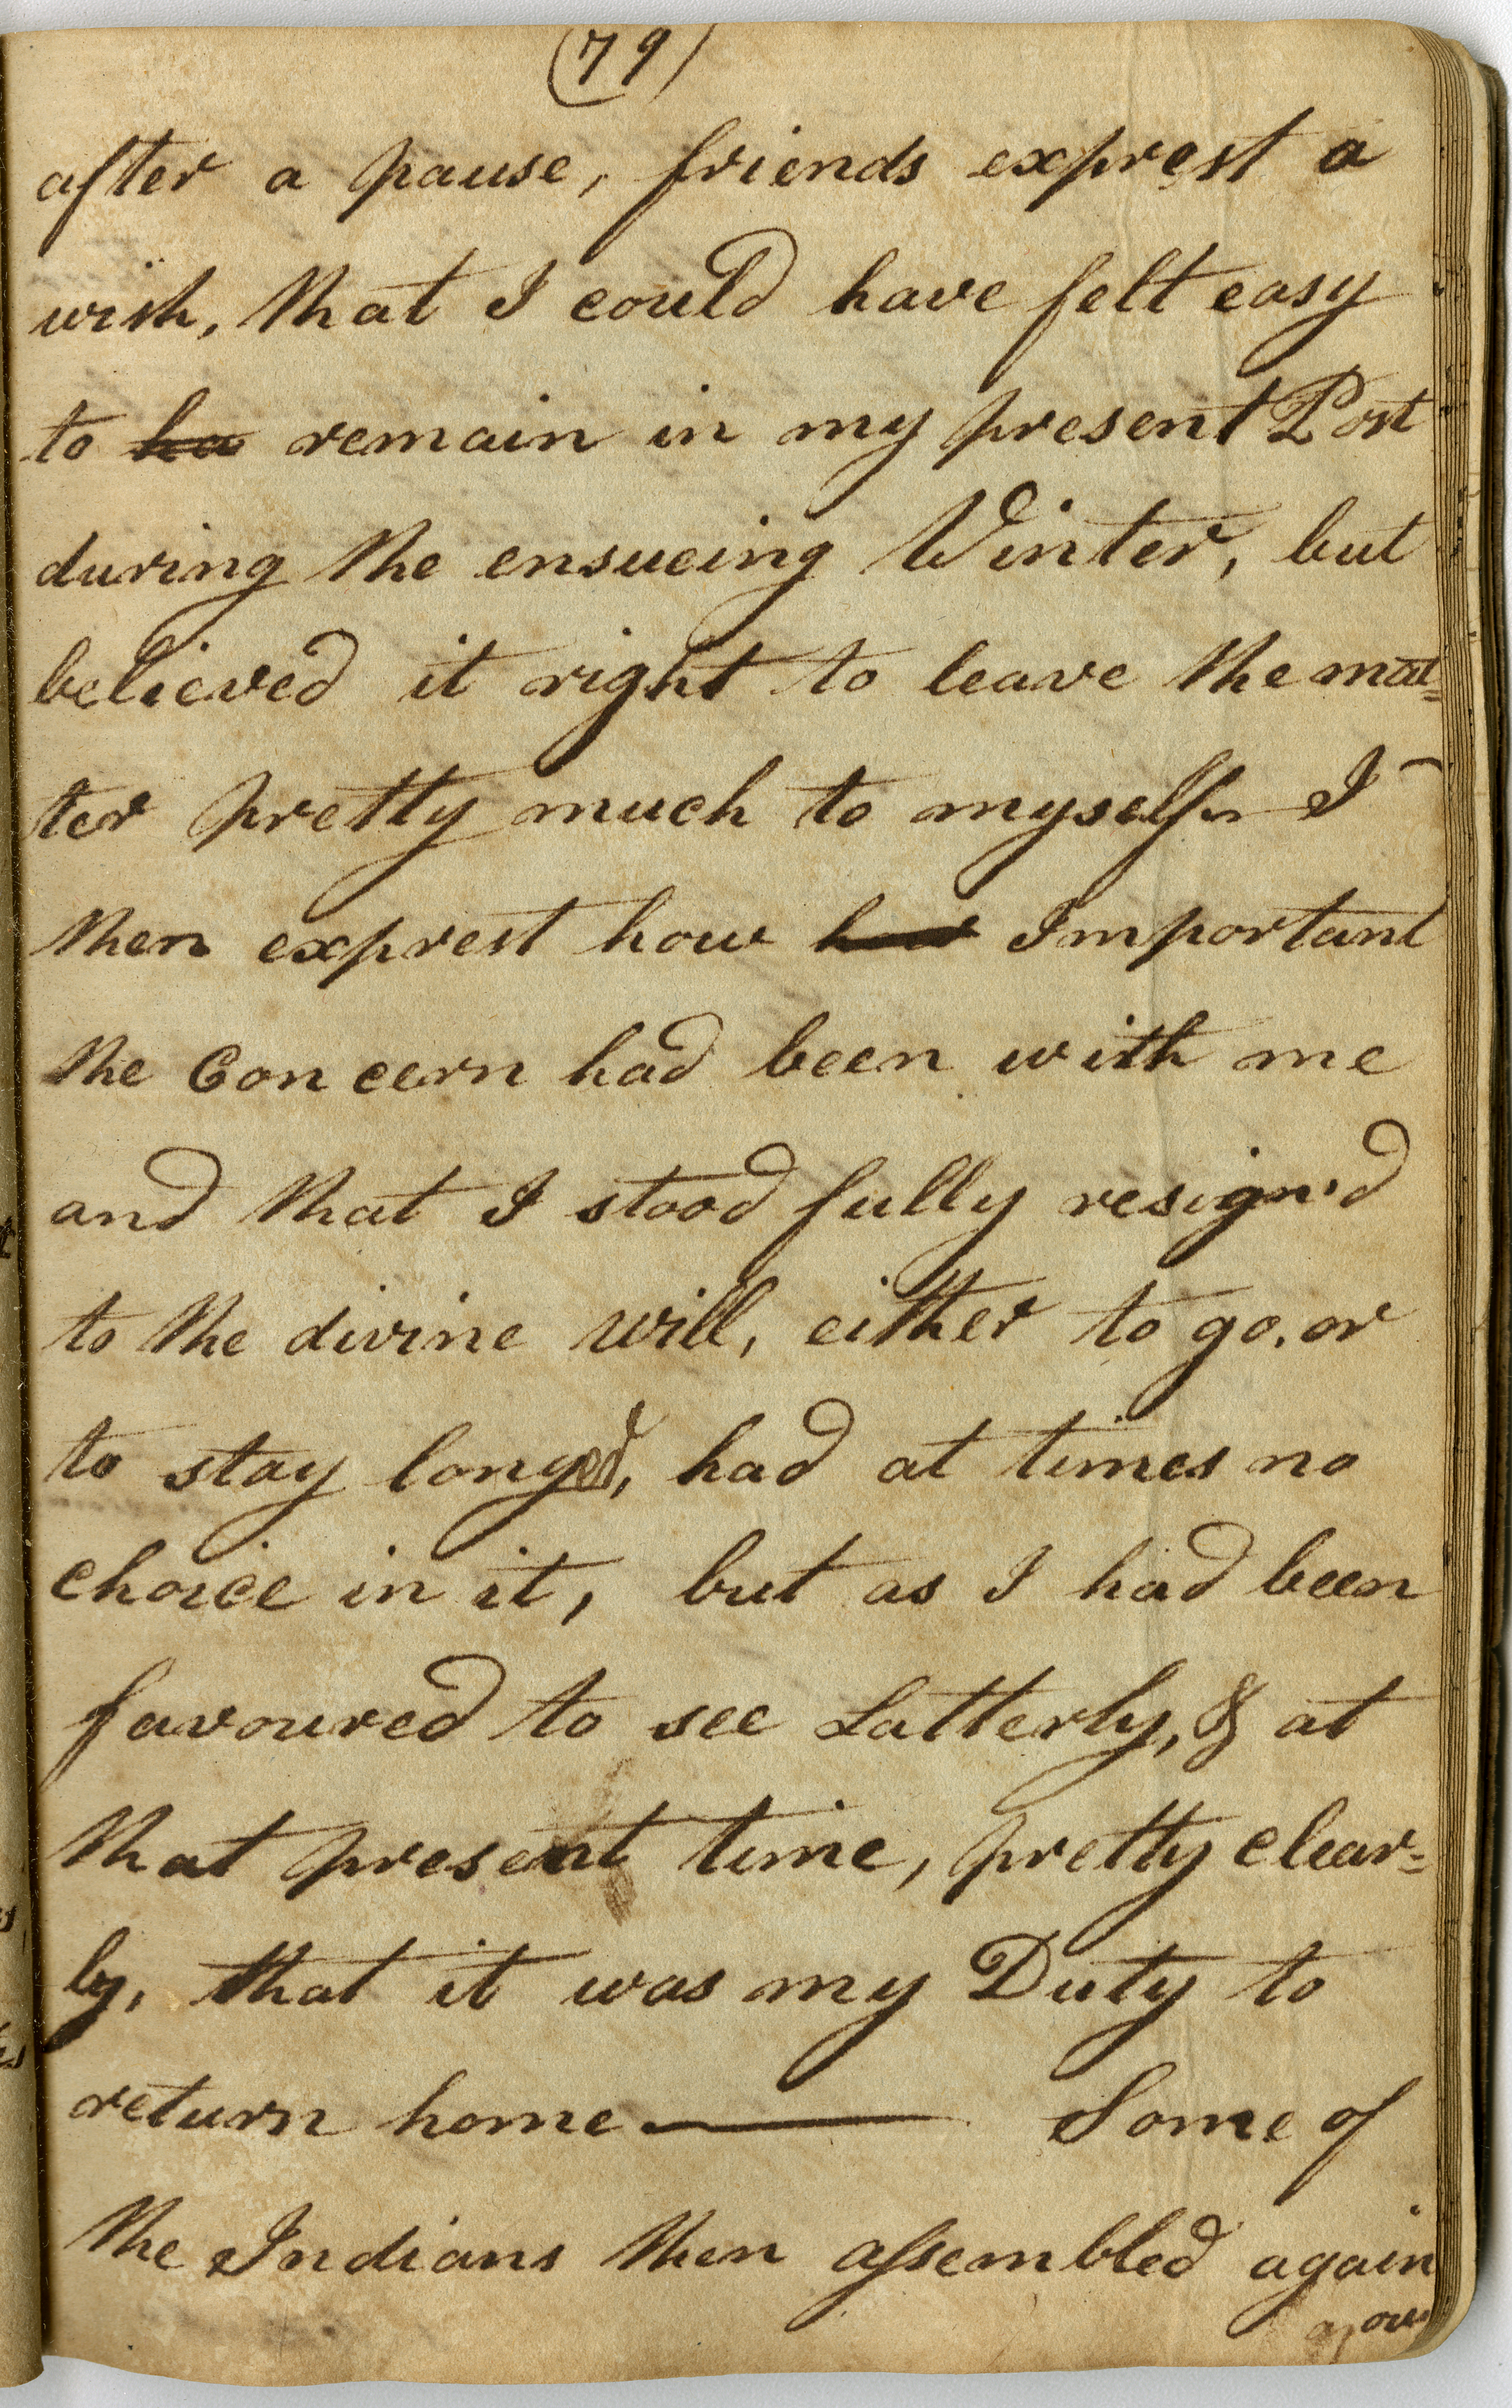 (79)
after a pause, friends exprest a
wish, that I could have felt easy
to ha remain in my present Post
during the ensueing Winter, but
believed it right to leave the mat=
ter pretty much to myself I
then exprest how how Important
the Concern had been with me
and that I stood fully resign'd
to the divine will, either to go, or
to stay longed, had at times no
choice in it, but as I had been
favoured to see Latterly, & at
that present time, pretty clear=
ly, that it was my Duty to
return home — Some of
the Indians then assembled again